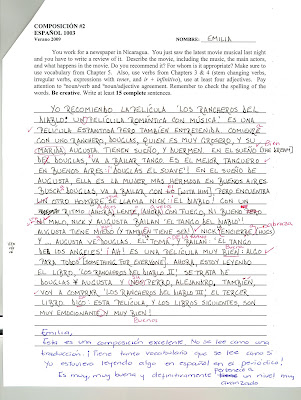 COMPOSICIÓN #2
ESPAÑOL 1003
Verano 2009
NOMBRE: EMILIA
You work for a newspaper in Nicaragua. You just saw the latest movie musical last night
and you have to write a review of it. Describe the movie, including the music, the main actors,
and what happens in the movie. Do you recommend it? For whom is it appropriate? Make sure to
use vocabulary from Chapter 5. Also, use verbs from Chapters 3 & 4 (stem changing verbs,
irregular verbs, expressions with tener, and ir + infinitive), use at least four adjectives. Pay
attention to "noun/verb and "noun/adjective agreement. Remember to check the spelling of
the words. Be creative. Write at least 15 complete sentences.
YO RECOMIENDO LA PELÍCULA 'LOS RANCHEROS DEL
DIABLO: UNA PELÍCULA ROMÁNTICA CON MÚSICA'. ES UNA
PELÍCULA ESTADITOSA PERO TAMBIÉN ENTRETENIDA. COMIENZA
CON UNO RANCHERO, DOUGLAS, QUIEN ES MUY GROSERO, Y SU
MARIDA, AUGUSTA. TIENEN SUEÑO, Y DUERMEN. EN EL SUEÑO (THE DREAM)
DE DOUGLAS, VA A BAILAR TANGO. ES EL MEJOR TANGUERO
EN BUENOS AIRES ¡DOUGLAS EL SUAVE! EN EL SUEÑO DE
AUGUSTA, ELLA ES LA MUJER MAS HERMOSA EN BUENOS AIRES.
BUSCA DOUGLAS, VA A BAILAR CON (WITH HIM) PERO ENCUENTRA
UN OTRO HOMBRE. SE LLAMA NICK ¡EL DIABLO! CON UN
RITMO (AHORA LENTE, AHORA CON FUEGO, NI BUENO
NI MALO, NICK Y AUGUSTA BAILAN 'EL TANGO DEL DIABLO'.
AUGUSTA TIENE MIEDO (Y TAMBIÉN TIENE SED) Y NICK
Y ... AUGUSTA VE DOUGLAS. EL TOMA Y BAILAN 'EL TANGO
DE LOS ANGELES'. ¡AH! ES UNA PELÍCULA MUY BIEN: ALGO
PARA TODOS (SOMETHING FOR EVERYONE). AHORA, ESTOY LEYENDO
EL LIBRO, 'LOS RANCHEROS DEL DIABLO II'. SE TRATA DE
DOUGLAS Y AUGUSTA Y PERRO, ALEJANDRO. TAMBIÉN,
VOY A COMPRAR 'LOS RANCHEROS DEL DIABLO III', EL TERCER
LIBRO. DIGO: ESTA PELÍCULA, Y LOS LIBROS SIGUIENTES, SON
MUY EMOCIONANTE Y MUY BIEN!
Buenos
Emilia,
Esta es una composición excelente. No se lee como una
traducción. ¡Tiene tanto vocabulario que se lee como si
yo estuviera leyendo algo en español en el periódico!
Es muy, muy buena y definitivamente pertenece a un nivel muy
avanzado